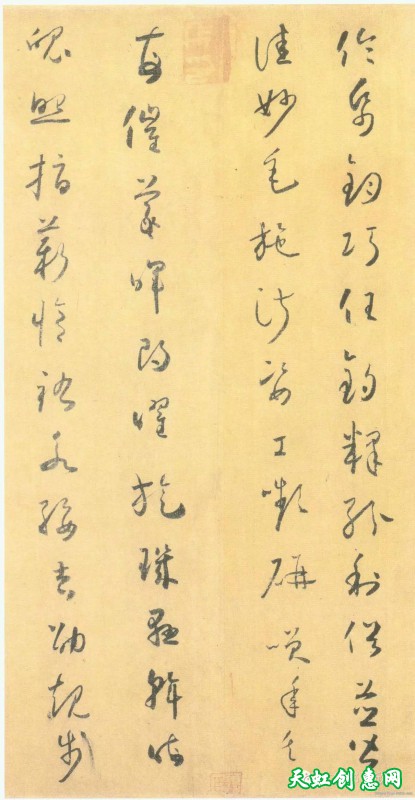 倫帋鈞巧任釣釋紛利俗並皆
佳妙毛施淑姿工嚬妍咲年矢
每催羲暉朗耀旋璣懸斡晦
魄照指薪脩祜永綏吉劭規步
天虹创惠网